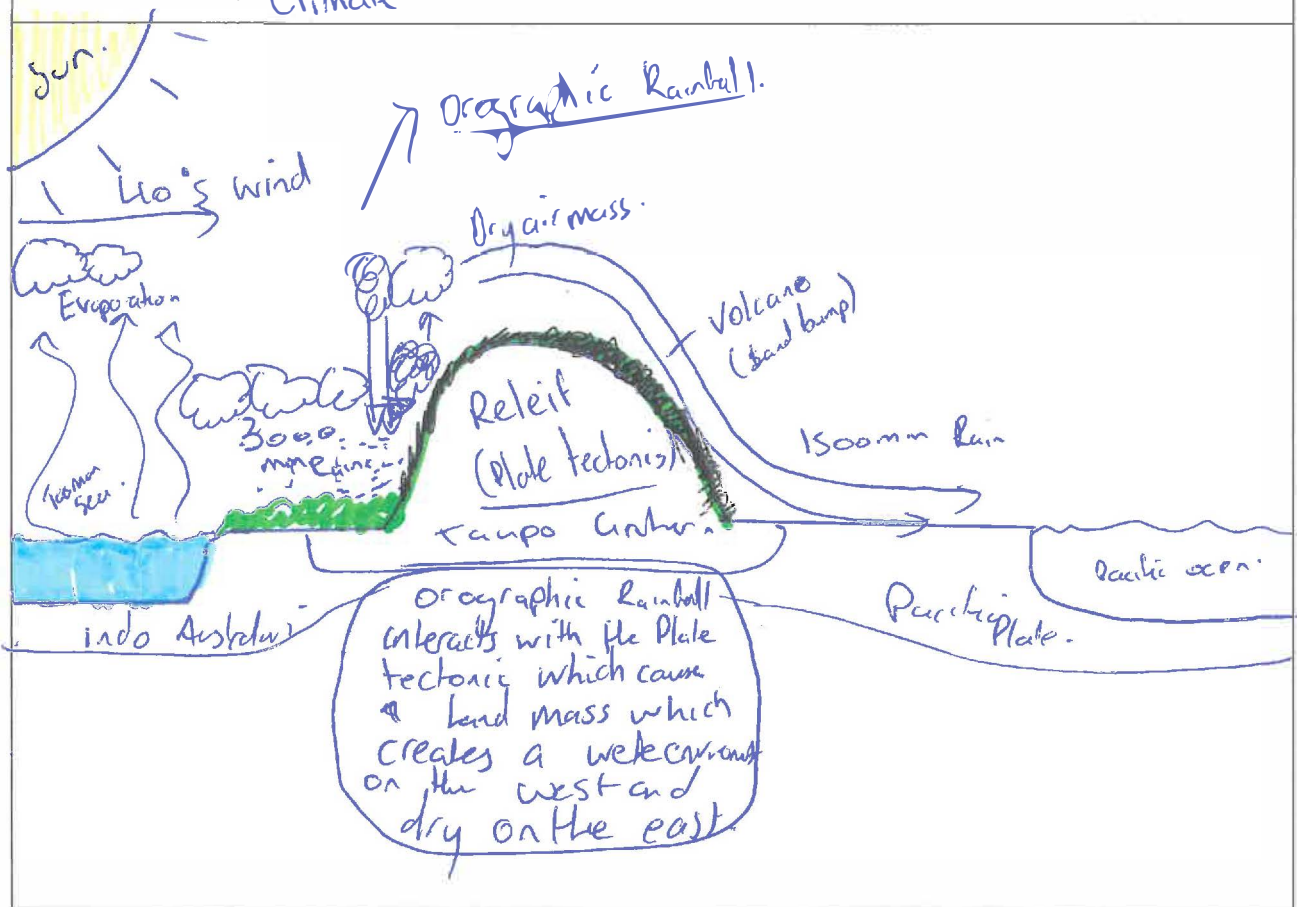 Climate
Sun.
Orographic Rainfall.
40's wind
Dry air mass.
Evaporation
Volcano
(Land bump)
Releif
(Plate tectonis)
3000
mm Rain
1500mm Rain
Tasman
Sea.
Taupo
Pacific ocen.
indo
Pacific
Plate.
Orographic Rainfall
interacts with the Plate
tectonic which cause
land mass which
creates a
on the west and
dry on the east